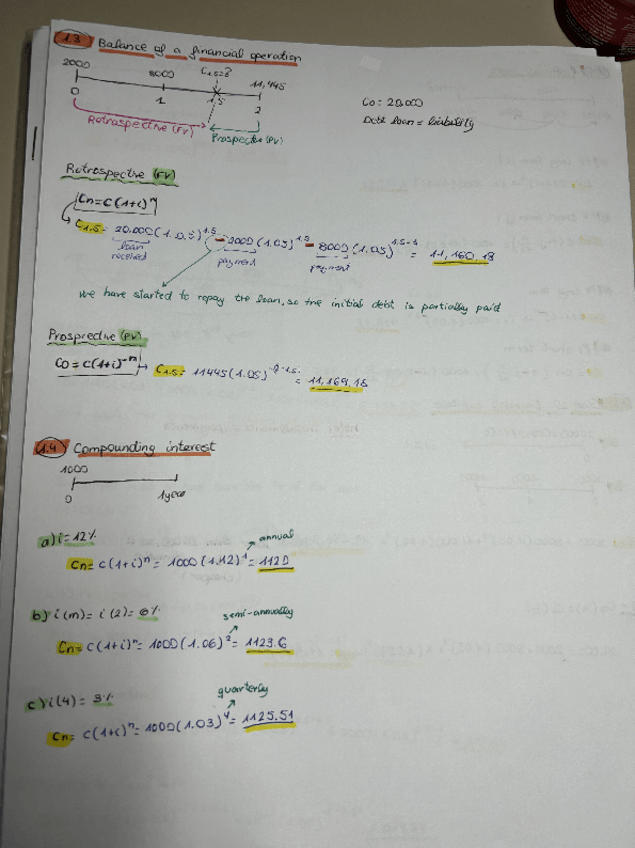 1.3 Balance of a financial operation
2000 8000 C1.5=? 11,445
0 1 1,5 2
Retrospective (FV)
Prospective (PV)
Co = 20.000
Debt loan = liability
Retrospective (FV)
Cn = C(1+i)^n
C1.5 = 20.000 (1.05)^1.5 - 2000 (1.05)^1.5 - 8000 (1.05)^1.5-1 = 11,169.18
loan received payment payment
We have started to repay the loan, so the initial debt is partially paid
Prosprective (PV)
Co = C(1+i)^-n → C1.5 = 11445 (1.05)^-2-1.5 = 11,169,18
1.4 Compounding interest
1000
0 1year
a) i = 12%
annual
Cn = C(1+i)^n = 1000 (1.12)^1 = 1120
b) i(m) = i(2) = 6%
semi-annually
Cn = C(1+i)^n = 1000 (1.06)^2 = 1123.6
c) i(4) = 3%
quarterly
Cn = C(1+i)^n = 1000 (1.03)^4 = 1125.51